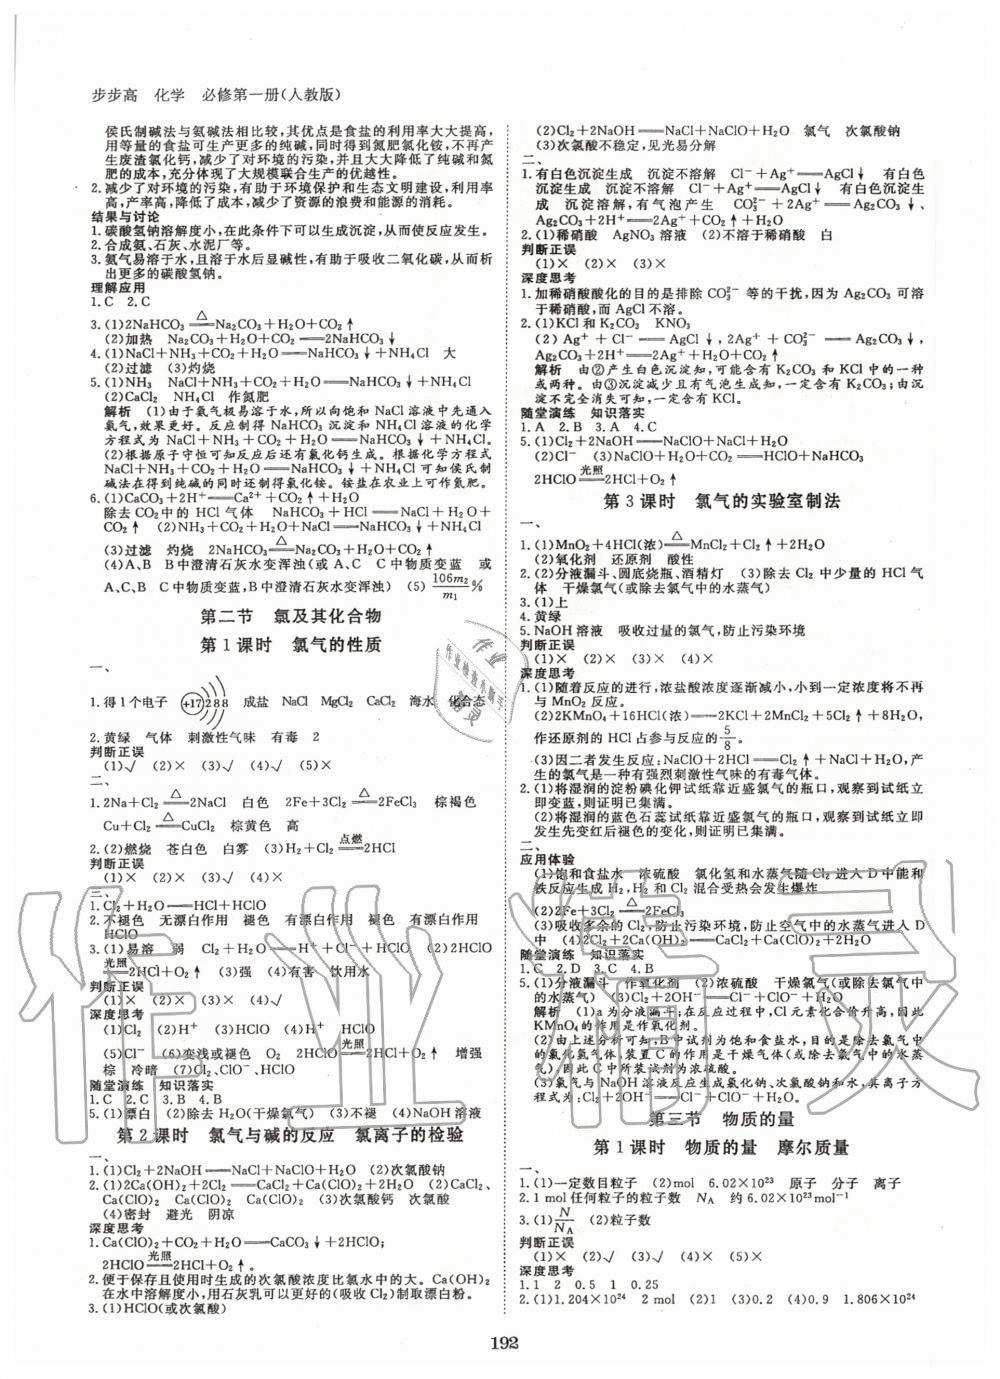 步步高　化学　必修第一册(人教版)
侯氏制碱法与氨碱法相比较,其优点是食盐的利用率大大提高,
用等量的食盐可生产更多的纯碱,同时得到氮肥氯化铵,不再产
生废渣氯化钙,减少了对环境的污染,并大大降低了纯碱和氮
肥的成本,充分体现了大规模联合生产的优越性。
2.减少了对环境的污染,有助于环境保护和生态文明建设,有利
于提高产率,降低了成本,减少了资源的浪费和能源的消耗。
结果与讨论
1.碳酸氢钠溶解度小,在此条件下可以生成沉淀,从而使反应发生。
2.合成氨、石灰、水泥厂等。
3.氨气易溶于水,且溶于水后显碱性,有助于吸收二氧化碳,从而析
出更多的碳酸氢钠。
理解应用
1.C　2.C
3.(1)2NaHCO₃══△══Na₂CO₃+H₂O+CO₂↑
(2)加热　Na₂CO₃+H₂O+CO₂══2NaHCO₃↓
4.(1)NaCl+NH₃+CO₂+H₂O══NaHCO₃↓+NH₄Cl　大
(2)过滤　(3)灼烧
5.(1)NH₃　NaCl+NH₃+CO₂+H₂O══NaHCO₃↓+NH₄Cl
(2)CaCl₂　NH₄Cl　作氮肥
解析　(1)由于氨气极易溶于水,所以向饱和 NaCl 溶液中先通入
氨气,效果更好。反应制得 NaHCO₃ 沉淀和 NH₄Cl 溶液的化学
方程式为 NaCl+NH₃+CO₂+H₂O══NaHCO₃↓+NH₄Cl。
(2)根据原子守恒可知反应后还有氯化钙生成。根据化学方程式
NaCl+NH₃+CO₂+H₂O══NaHCO₃↓+NH₄Cl 可知侯氏制
碱法在得到纯碱的同时还得到氯化铵。铵盐在农业上可作氮肥。
6.(1)CaCO₃+2H⁺══Ca²⁺+CO₂↑+H₂O
除去CO₂中的 HCl 气体　NaHCO₃+HCl══NaCl+H₂O+
CO₂↑　(2)NH₃+CO₂+H₂O+NaCl══NaHCO₃↓+NH₄Cl
(3)过滤　灼烧　2NaHCO₃══△══Na₂CO₃+H₂O+CO₂↑
(4)A、B　B中澄清石灰水变浑浊(或 A、C　C 中物质变蓝　或
A、B、C　C 中物质变蓝、B 中澄清石灰水变浑浊)　(5) 106m₂/m₁ %
第二节　氯及其化合物
第1课时　氯气的性质
一、
1.得1个电子　(+17) 2 8 8　成盐　NaCl　MgCl₂　CaCl₂　海水　化合态
2.黄绿　气体　刺激性气味　有毒　2
判断正误
(1)√　(2)×　(3)√　(4)√　(5)×
二、
1.2Na+Cl₂══△══2NaCl　白色　2Fe+3Cl₂══△══2FeCl₃　棕褐色
Cu+Cl₂══△══CuCl₂　棕黄色　高
2.(2)燃烧　苍白色　白雾　(3)H₂+Cl₂══点燃══2HCl
判断正误
(1)×　(2)×　(3)√　(4)×
三、
1.Cl₂+H₂O══HCl+HClO
2.不褪色　无漂白作用　褪色　有漂白作用　褪色　有漂白作用
HClO
3.(1)易溶　弱　Cl₂+H₂O══H⁺+Cl⁻+HClO　(2)2HClO
══光照══2HCl+O₂↑　(3)强　(4)有害　饮用水
判断正误
(1)×　(2)×　(3)×　(4)√
深度思考
(1)Cl₂　(2)H⁺　(3)HClO　(4)H⁺　HClO
(5)Cl⁻　(6)变浅或褪色　O₂　2HClO══光照══2HCl+O₂↑　增强
棕　冷暗　(7)Cl₂、ClO⁻、HClO
随堂演练　知识落实
1.C　2.C　3.B　4.B
5.(1)漂白　(2)除去 H₂O(干燥氯气)　(3)不褪　(4)NaOH溶液
第2课时　氯气与碱的反应　氯离子的检验
一、
1.(1)Cl₂+2NaOH══NaCl+NaClO+H₂O　(2)次氯酸钠
2.(1)2Ca(OH)₂+2Cl₂══CaCl₂+Ca(ClO)₂+2H₂O　(2)CaCl₂、
Ca(ClO)₂　Ca(ClO)₂　Ca(ClO)₂　(3)次氯酸钙　次氯酸
(4)密封　避光　阴凉
深度思考
1.Ca(ClO)₂+CO₂+H₂O══CaCO₃↓+2HClO;
2HClO══光照══2HCl+O₂↑。
2.便于保存且使用时生成的次氯酸浓度比氯水中的大。Ca(OH)₂
在水中溶解度小,用石灰乳可以更多的(吸收 Cl₂)制取漂白粉。
3.(1)HClO(或次氯酸)
(2)Cl₂+2NaOH══NaCl+NaClO+H₂O　氯气　次氯酸钠
(3)次氯酸不稳定,见光易分解
二、
1.有白色沉淀生成　沉淀不溶解　Cl⁻+Ag⁺══AgCl↓　有白色
沉淀生成　沉淀不溶解　Cl⁻+Ag⁺══AgCl↓　有白色沉淀生
成　沉淀溶解,有气泡产生　CO₃²⁻+2Ag⁺══Ag₂CO₃↓、
Ag₂CO₃+2H⁺══2Ag⁺+CO₂↑+H₂O
2.(1)稀硝酸　AgNO₃ 溶液　(2)不溶于稀硝酸　白
判断正误
(1)×　(2)×　(3)×
深度思考
1.加稀硝酸酸化的目的是排除 CO₃²⁻ 等的干扰,因为 Ag₂CO₃ 可溶
于稀硝酸,而 AgCl 不溶。
2.(1)KCl 和 K₂CO₃　KNO₃
(2)Ag⁺+Cl⁻══AgCl↓,2Ag⁺+CO₃²⁻══Ag₂CO₃↓,
Ag₂CO₃+2H⁺══2Ag⁺+H₂O+CO₂↑
解析　由②产生白色沉淀知,可能含有 K₂CO₃ 和 KCl 中的一种
或两种。由③沉淀减少且有气泡生成知,一定含有 K₂CO₃;由沉
淀不完全消失可知,一定含有 KCl。
随堂演练　知识落实
1.A　2.B　3.A　4.C
5.(1)Cl₂+2NaOH══NaClO+NaCl+H₂O
(2)Cl⁻　(3)NaClO+H₂O+CO₂══HClO+NaHCO₃
2HClO══光照══2HCl+O₂↑
第3课时　氯气的实验室制法
一、
1.(1)MnO₂+4HCl(浓)══△══MnCl₂+Cl₂↑+2H₂O
(2)氧化剂　还原剂　酸性
2.(2)分液漏斗、圆底烧瓶、酒精灯　(3)除去 Cl₂ 中少量的 HCl 气
体　干燥氯气(或除去氯气中的水蒸气)
3.(1)上
4.黄绿
5.NaOH 溶液　吸收过量的氯气,防止污染环境
判断正误
(1)×　(2)×　(3)×　(4)×
深度思考
1.(1)随着反应的进行,浓盐酸浓度逐渐减小,小到一定浓度将不再
与 MnO₂ 反应。
(2)2KMnO₄+16HCl(浓)══2KCl+2MnCl₂+5Cl₂↑+8H₂O,
作还原剂的 HCl 占参与反应的5/8。
(3)因二者发生反应:NaClO+2HCl══Cl₂↑+NaCl+H₂O,产
生的氯气是一种有强烈刺激性气味的有毒气体。
2.(1)将湿润的淀粉碘化钾试纸靠近盛氯气的瓶口,观察到试纸立
即变蓝,则证明已集满。
(2)将湿润的蓝色石蕊试纸靠近盛氯气的瓶口,观察到试纸立即
发生先变红后褪色的变化,则证明已集满。
二、
应用体验
(1)饱和食盐水　浓硫酸　氯化氢和水蒸气随 Cl₂ 进入 D 中能和
铁反应生成 H₂,H₂ 和 Cl₂ 混合受热会发生爆炸
(2)2Fe+3Cl₂══△══2FeCl₃
(3)吸收多余的 Cl₂,防止污染环境,防止空气中的水蒸气进入 D
中　(4)2Cl₂+2Ca(OH)₂══CaCl₂+Ca(ClO)₂+2H₂O
随堂演练　知识落实
1.C　2.D　3.C　4.B
5.(1)分液漏斗　作氧化剂　(2)浓硫酸　干燥氯气(或除去氯气中
的水蒸气)　(3)Cl₂+2OH⁻══Cl⁻+ClO⁻+H₂O
解析　(1)a 为分液漏斗;在反应过程中,Cl 元素化合价升高,因此
KMnO₄的作用是作氧化剂。
(2)由上述分析可知,B 中试剂为饱和食盐水,目的是除去氯气中
的氯化氢气体,装置 C 的作用是干燥气体(或除去氯气中的水蒸
气),因此 C 中所装试剂为浓硫酸。
(3)氯气与NaOH溶液反应生成氯化钠、次氯酸钠和水,其离子
方程式为:Cl₂+2OH⁻══Cl⁻+ClO⁻+H₂O。
第三节　物质的量
第1课时　物质的量　摩尔质量
一、
1.(1)一定数目粒子　(2)mol　6.02×10²³　原子　分子　离子
2.1 mol任何粒子的粒子数　N_A　约 6.02×10²³ mol⁻¹
3.(1)N/N_A　(2)粒子数
判断正误
(1)×　(2)√　(3)√　(4)×　(5)×
深度思考
1.1　2　0.5　1　0.25
2.(1)1.204×10²⁴　2 mol　(2)1　(3)0.2　(4)0.9　1.806×10²⁴
192
作业精灵
作业
作业检查小助手
精灵